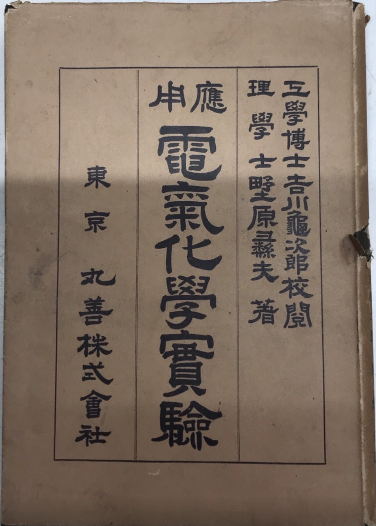 工學博士吉川龜次郎校閱
理學士野原夫著
應用
電氣化學實驗
東京 丸善株式會社